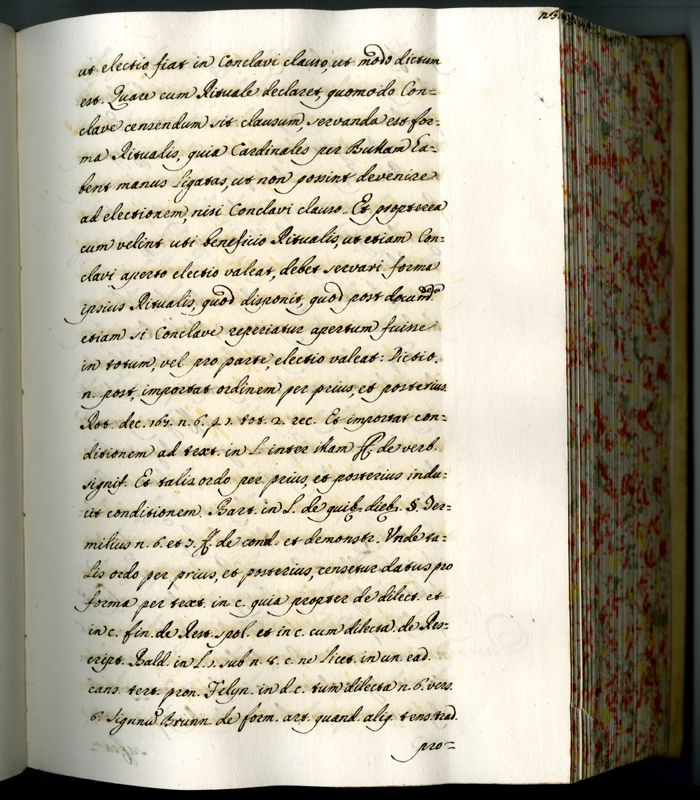 ut electio fiat in Conclavi clauso, ut modo dictum
est. Quare cum Rituale declaret, quomodo Con=
clave censendum sit clausum, servanda est for=
ma Ritualis, quia Cardinales per Bullam ha=
bent manus ligatas, ut non possint devenire
ad electionem, nisi Conclavi clauso. Et propterea
cum velint uti beneficio Ritualis, ut etiam Con=
clavi aperto electio valeat, debet servari forma
ipsius Ritualis, quod disponit, quod post
etiam si Conclave reperiatur apertum fuisse
in totum, vel pro parte, electio valeat: Dictio,
n. post, importat ordinem per prius, et posterius
Rot. dec. 167. n. 6. p. 1. tot. 2. rec. Et importat con=
ditionem ad text. in L. inter illam ff. de verb.
signif. Et talis ordo per prius, et posterius indu=
cit conditionem. Bart. in L. de quib. dieb. §. Ter=
milius n. 6. et 7. ff. de cond. et demonstr. Unde ta=
lis ordo per prius, et posterius, censetur datus pro
forma per text. in c. quia propter de dilect. et
in c. fin. de Rest. spol. et in c. cum dilecta. de Res=
cript. Bald. in L. 1. sub n. 5. c. ne licet in un. ead.
caus. tert. prov. Felyn. in d. c. cum dilecta n. 6. vers.
6. Brunn. de form. art. quand. aliq.
pro=